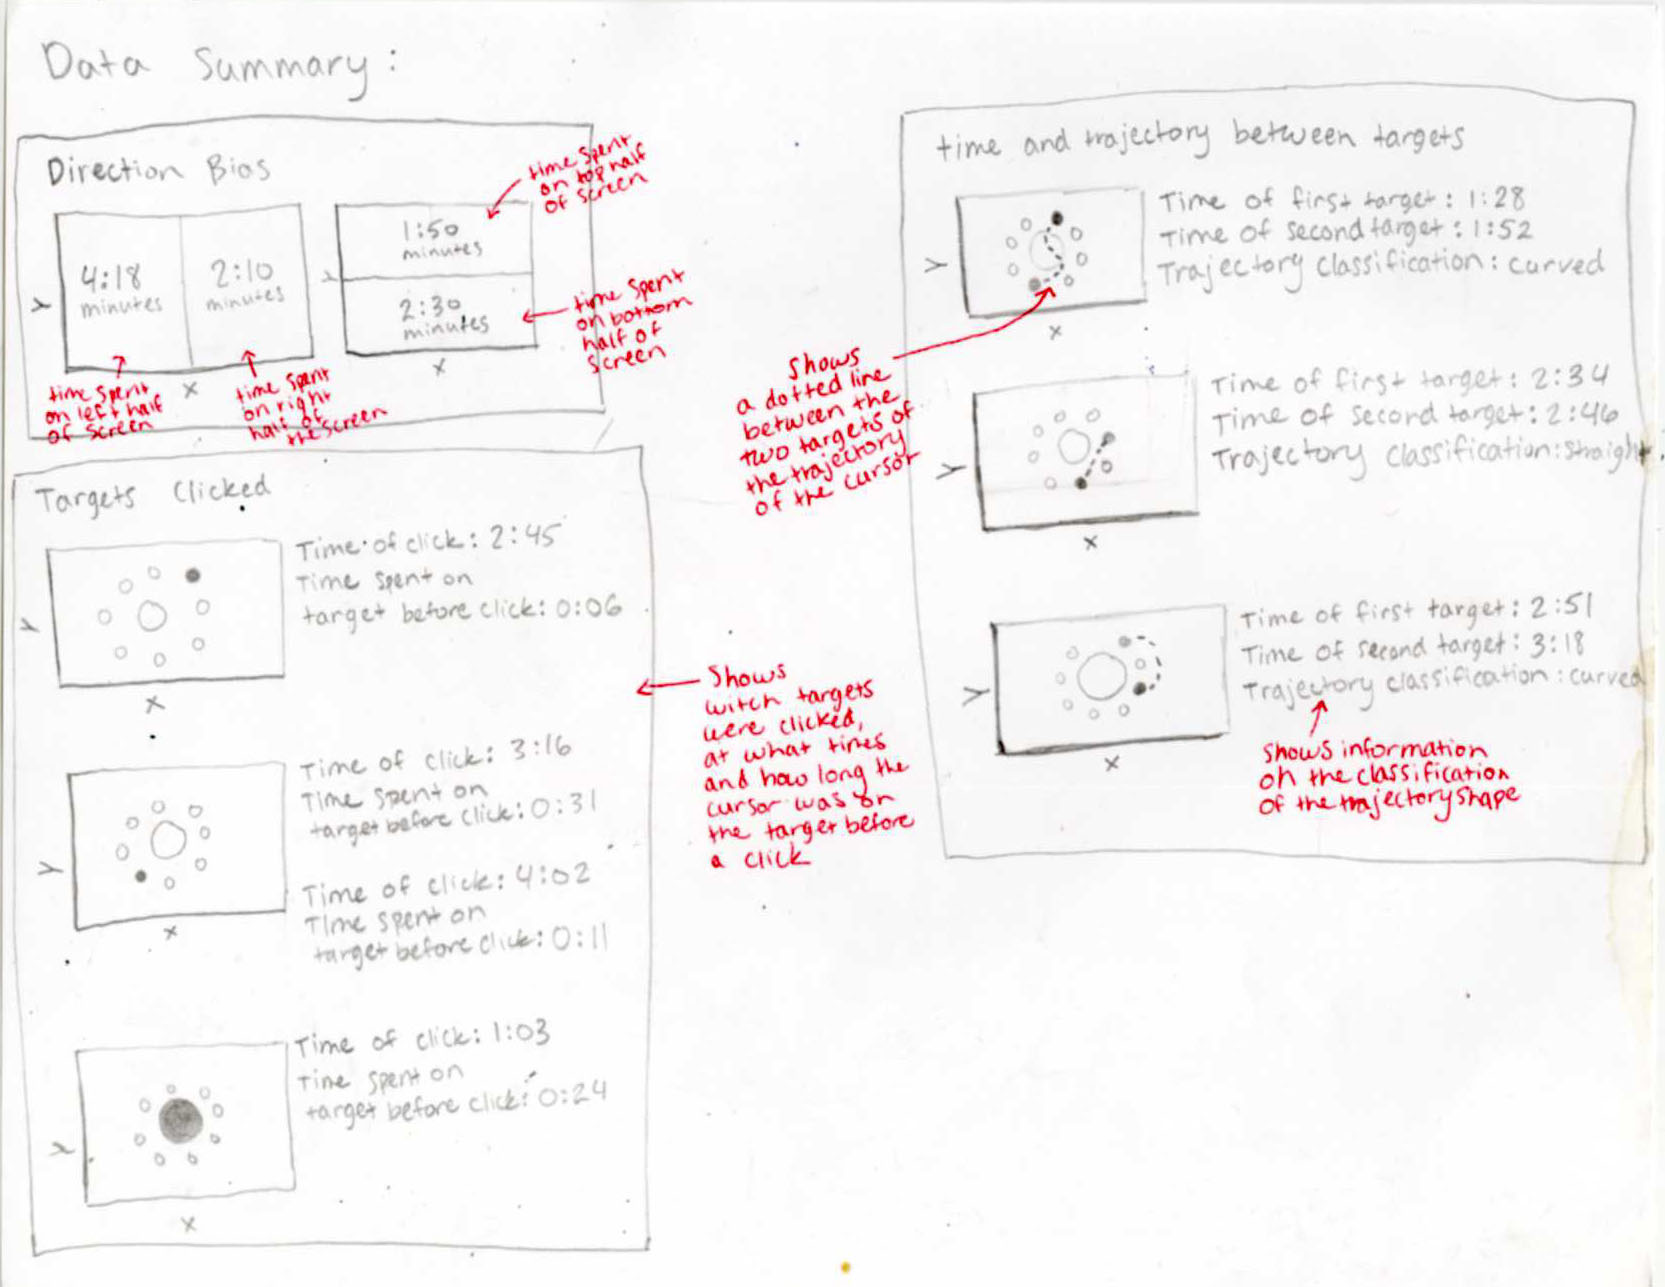 Data Summary:
Direction Bias
4:18
minutes
2:10
minutes
Y
X
time spent
on left half
of screen
time spent
on right
half of
the screen
1:50
minutes
2:30
minutes
Y
X
time spent
on top half
of screen
time spent
on bottom
half of
screen
Targets Clicked
Y
X
Time of click: 2:45
Time spent on
target before click: 0:06
Y
X
Time of click: 3:16
Time spent on
target before click: 0:31
Time of click: 4:02
Time spent on
target before click: 0:11
Y
X
Time of click: 1:03
Time spent on
target before click: 0:24
Shows
witch targets
were clicked,
at what times
and how long the
cursor was on
the target before
a click
time and trajectory between targets
Y
X
Time of first target: 1:28
Time of second target: 1:52
Trajectory classification: curved
Shows
a dotted line
between the
two targets of
the trajectory
of the cursor
Y
X
Time of first target: 2:34
Time of second target: 2:46
Trajectory classification: straight.
Y
X
Time of first target: 2:51
Time of second target: 3:18
Trajectory classification: curved
Shows information
on the classification
of the trajectory shape